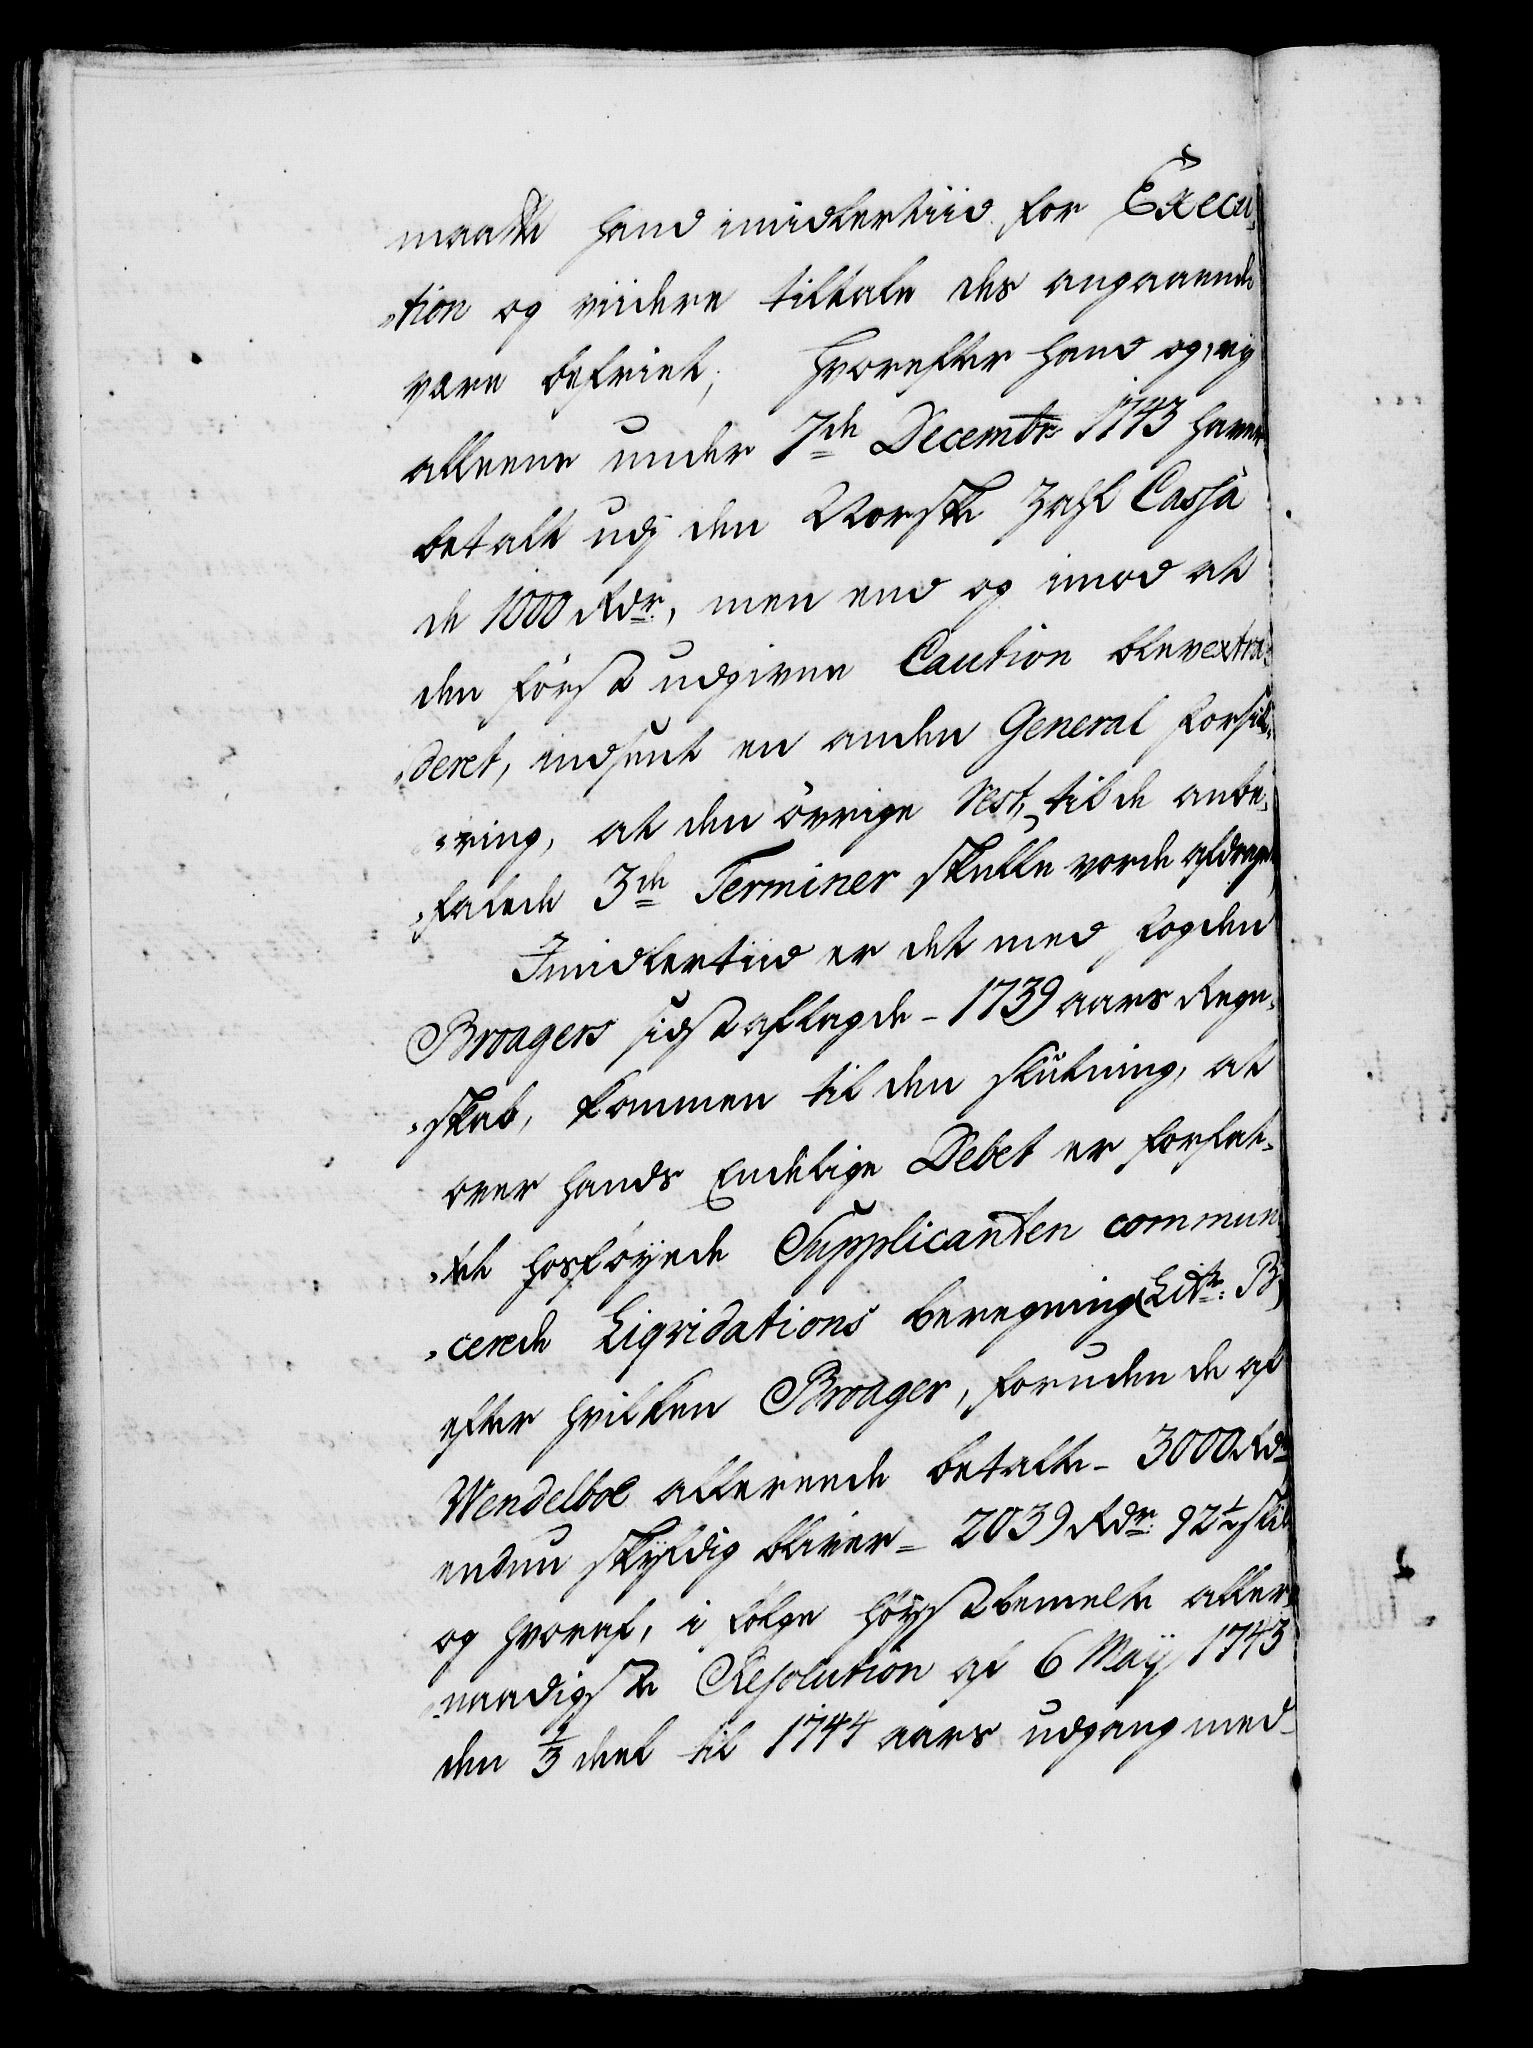 maatte hand imidlertiid for Execu-
-tion og viidere tiltale des angaaende
være befriet; hvorefter hand og, ey
alleene under 7de Decembr 1743 haver
betalt udj den Norske Zahl Cassa
de 1000 Rdr, men end og imod at
den först udgivne Caution blev extra-
-deret, indsent en anden General forsik-
-ring, at den övrige Rest, til de anbe-
-falede 3de Terminer skulle vorde afdragen
Imidlertiid er det med fogden
Broagers sidst aflagde - 1739 aars Regn-
-skab, kommen til den slutning, at
over hands Endelige Debet er forfat-
-tet hosföyede Supplicanten commun-
-cerede Liqvidations beregning (Litr. B)
efter hvilken Broager, foruden de af
Wendelboe allereede betalte - 3000 Rdr
endnu skyldig bliver - 2039 Rdr. 92½ skl
og hvoraf, i fölge höyst bemelte aller-
-naadigste Resolution af 6 Maÿ 1743
den ⅓ deel til 1744 aars udgang med-